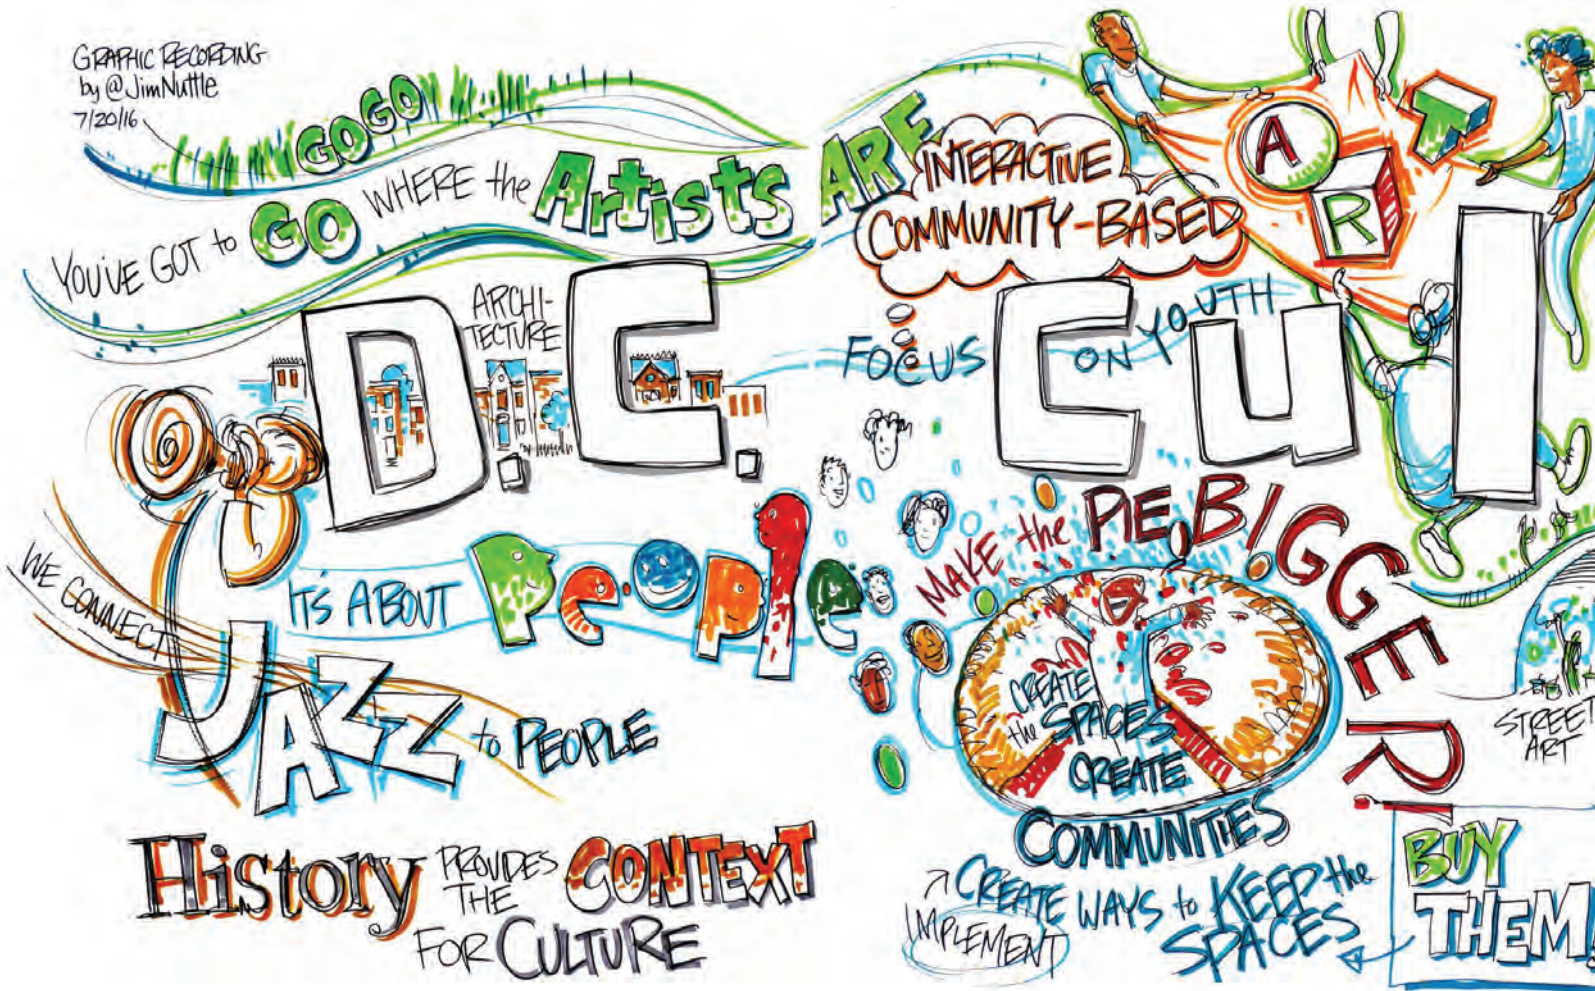 GRAPHIC RECORDING
by @JimNuttle
7/20/16
GOGO
YOU'VE GOT to GO WHERE the Artists ARE
INTERACTIVE
COMMUNITY-BASED
ART
ARCHI-
TECTURE
D.C. Cul
FOCUS ON YOUTH
IT'S ABOUT People
WE CONNECT
JAZZ to PEOPLE
MAKE the PIE BIGGER!
CREATE
the SPACES
CREATE
COMMUNITIES
STREET
ART
History PROVIDES
THE CONTEXT
FOR CULTURE
CREATE WAYS to KEEP the
SPACES
IMPLEMENT
BUY
THEM!